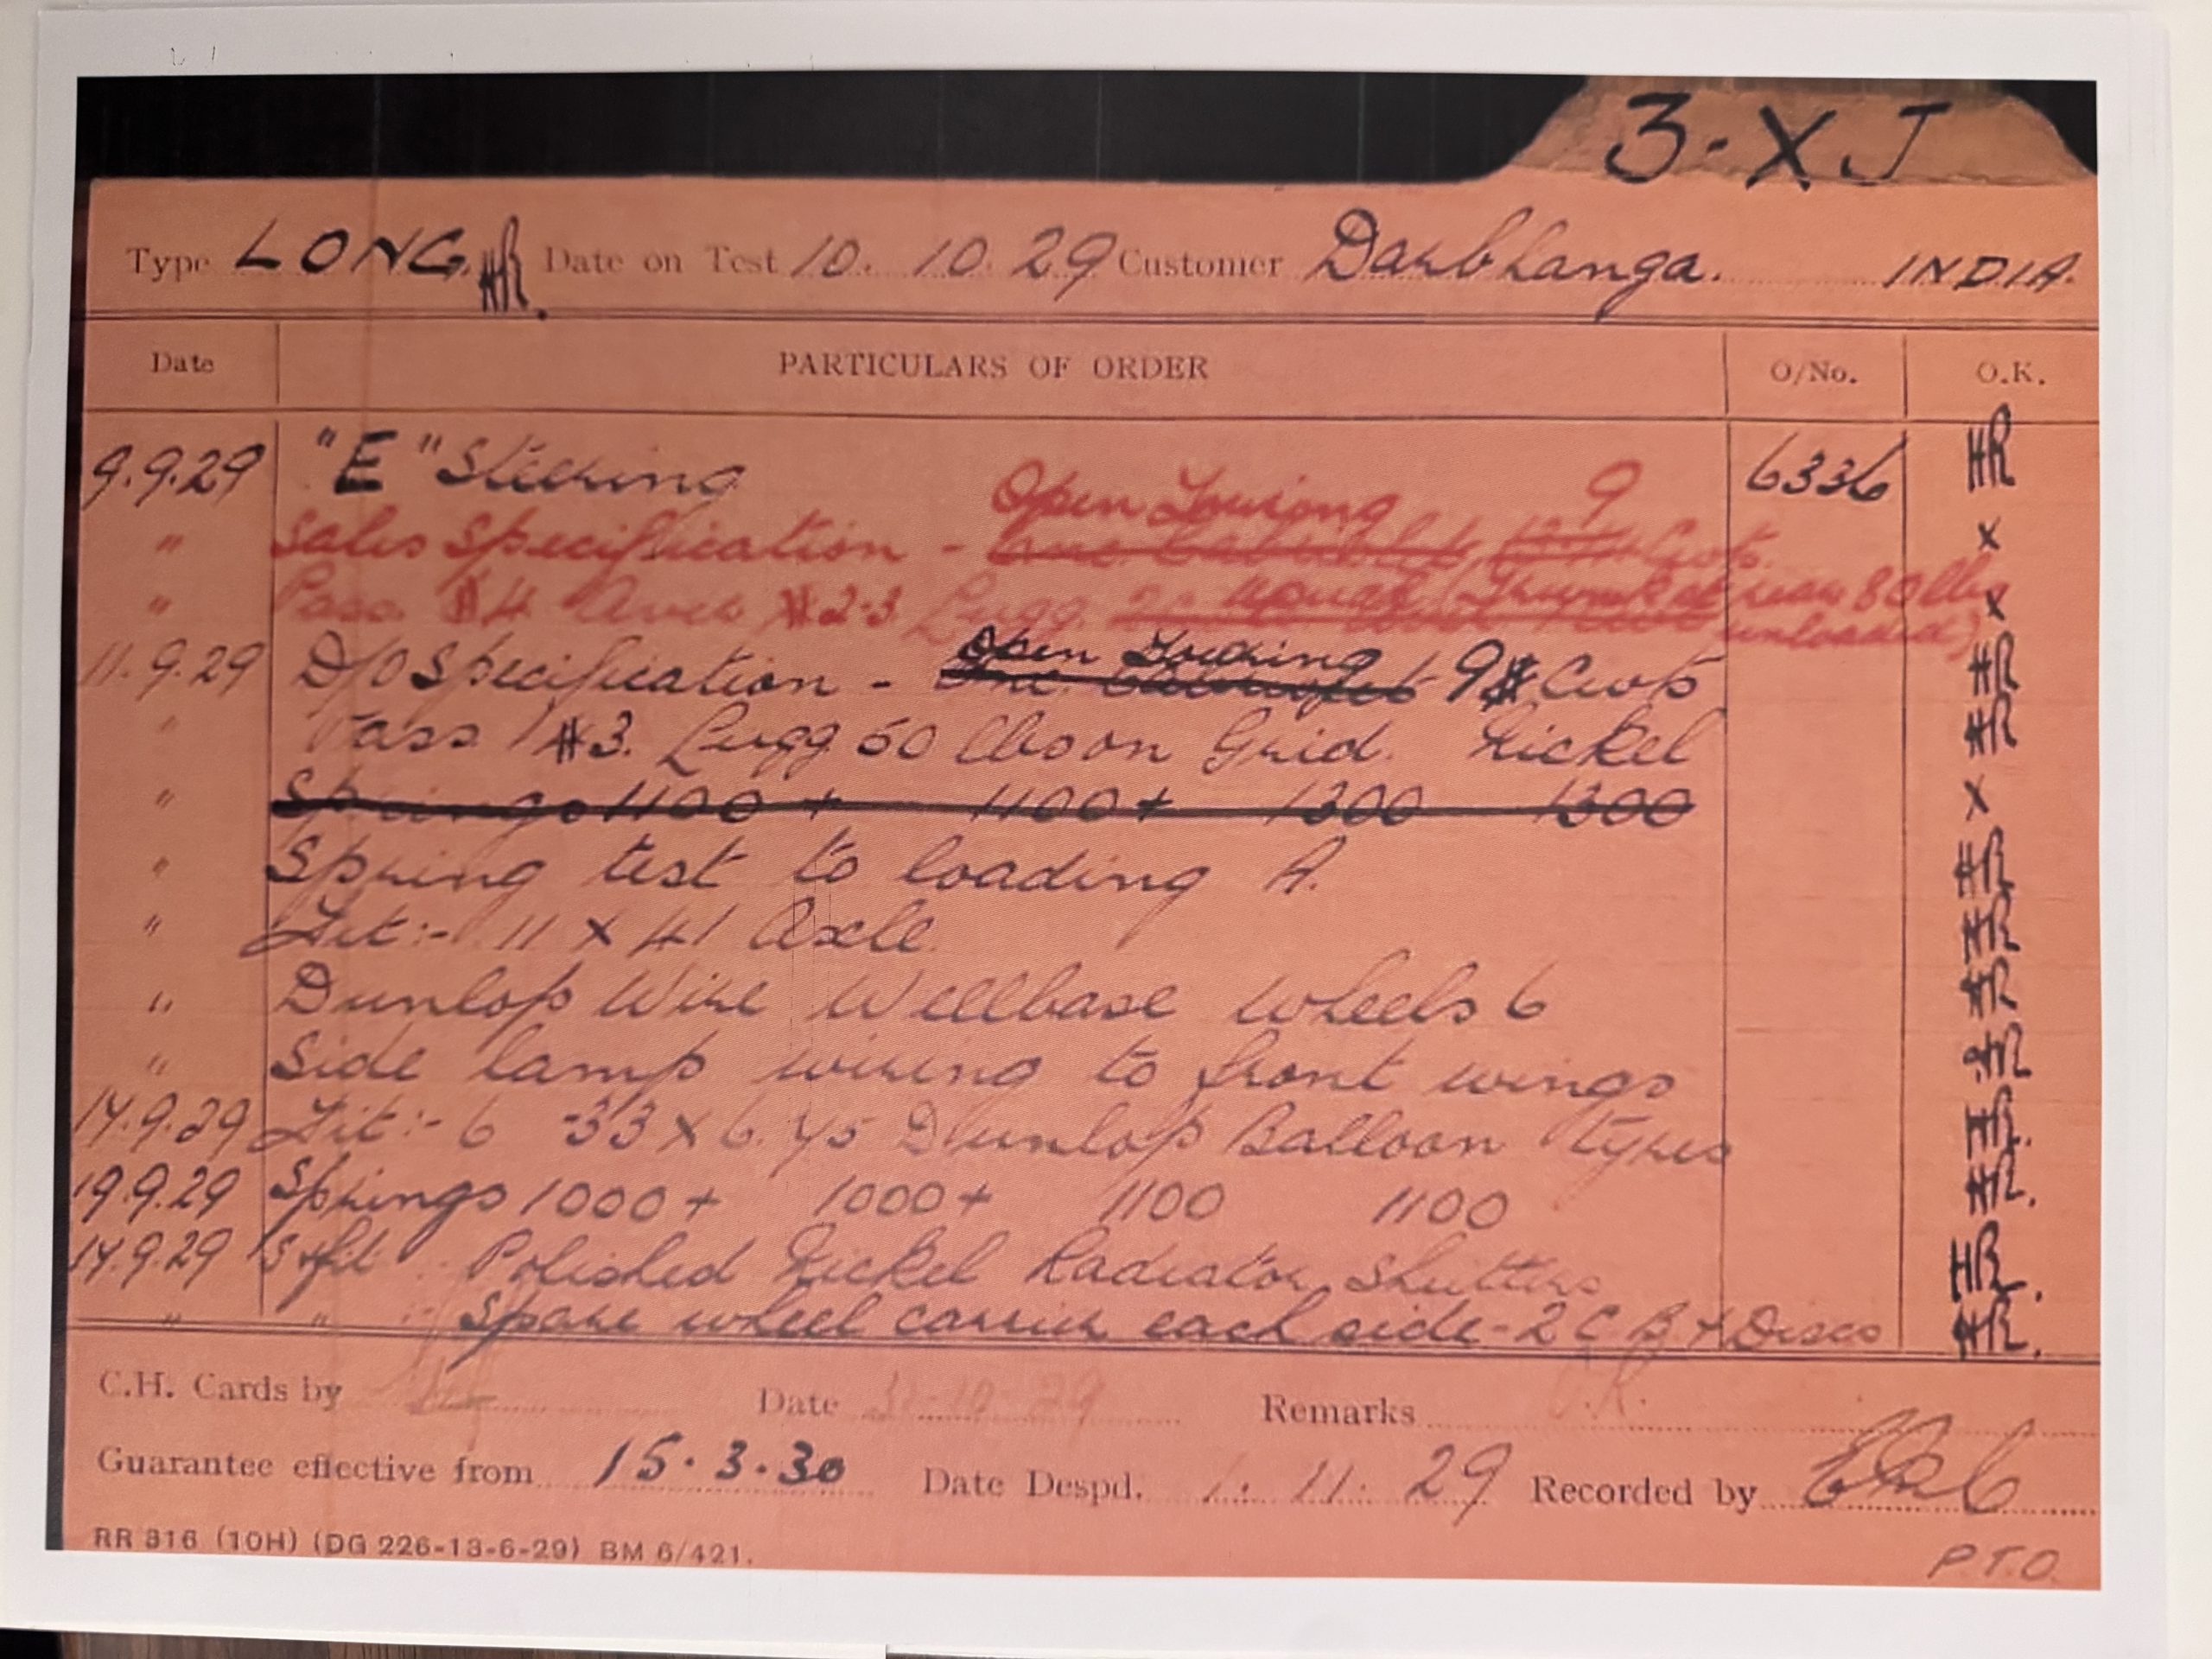 3-XJ
Type LONG. HR. Date on Test 10. 10. 29 Customer Darbhanga. INDIA.
Date PARTICULARS OF ORDER O/No. O.K.
9.9.29 "E" Steering 6336 HR
Open Touring 9
" Sales Specification - Cwts. x
" Pass #4 Aver #2-3 Lugg. (Trunk at rear 80 lbs x
unloaded)
Open Touring
11.9.29 D/O Specification - 9 Cwts HR
" Pass #3. Lugg 50 lbs on Grid. Nickel HR
" Springs 1100 + 1100 + 1300 1300 x
" Spring test to loading A. HR
" Fit:- 11 x 41 Axle. HR
" Dunlop Wire Wellbase Wheels 6 HR
" Side lamp wiring to front wings HR
14.9.29 Fit:- 6 33 x 6.75 Dunlop Balloon tyres HR.
19.9.29 Springs 1000 + 1000 + 1100 1100 HR.
14.9.29 Polished Nickel Radiator Shutters HR.
" " Spare wheel carrier each side - 2 C B & Discs HR.
C.H. Cards by Date 31-10-29 Remarks O.K.
Guarantee effective from 15.3.30 Date Despd. 1. 11. 29 Recorded by
RR 316 (10H) (DG 226-13-6-29) BM 6/421.
P.T.O.